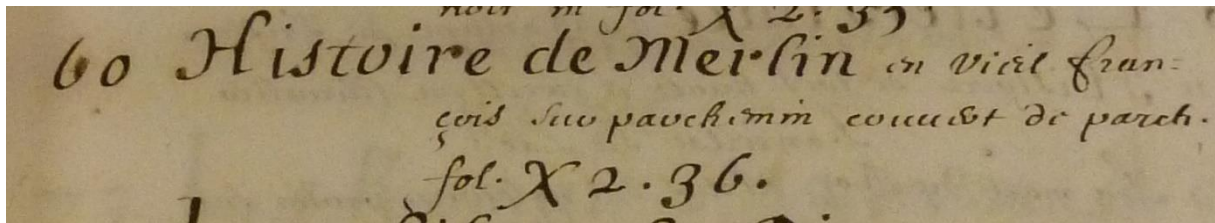 noir in fol. X 2. 35.
60 Histoire de Merlin en vieil fran=
çois sur parchemin couuert de parch.
fol. X 2. 36.